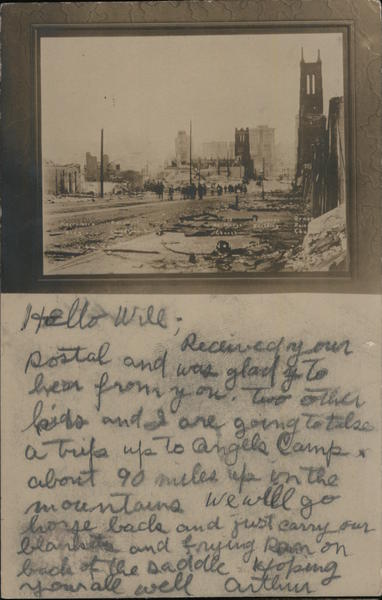 Hello Will;
Received your
postal and was glad to
hear from you. Two other
kids and I are going to take
a trip up to Angels Camp
about 90 miles up in the
mountains we will go
horse back and just carry our
blankets and frying pan on
back of the saddle. Hoping
you all well Arthur